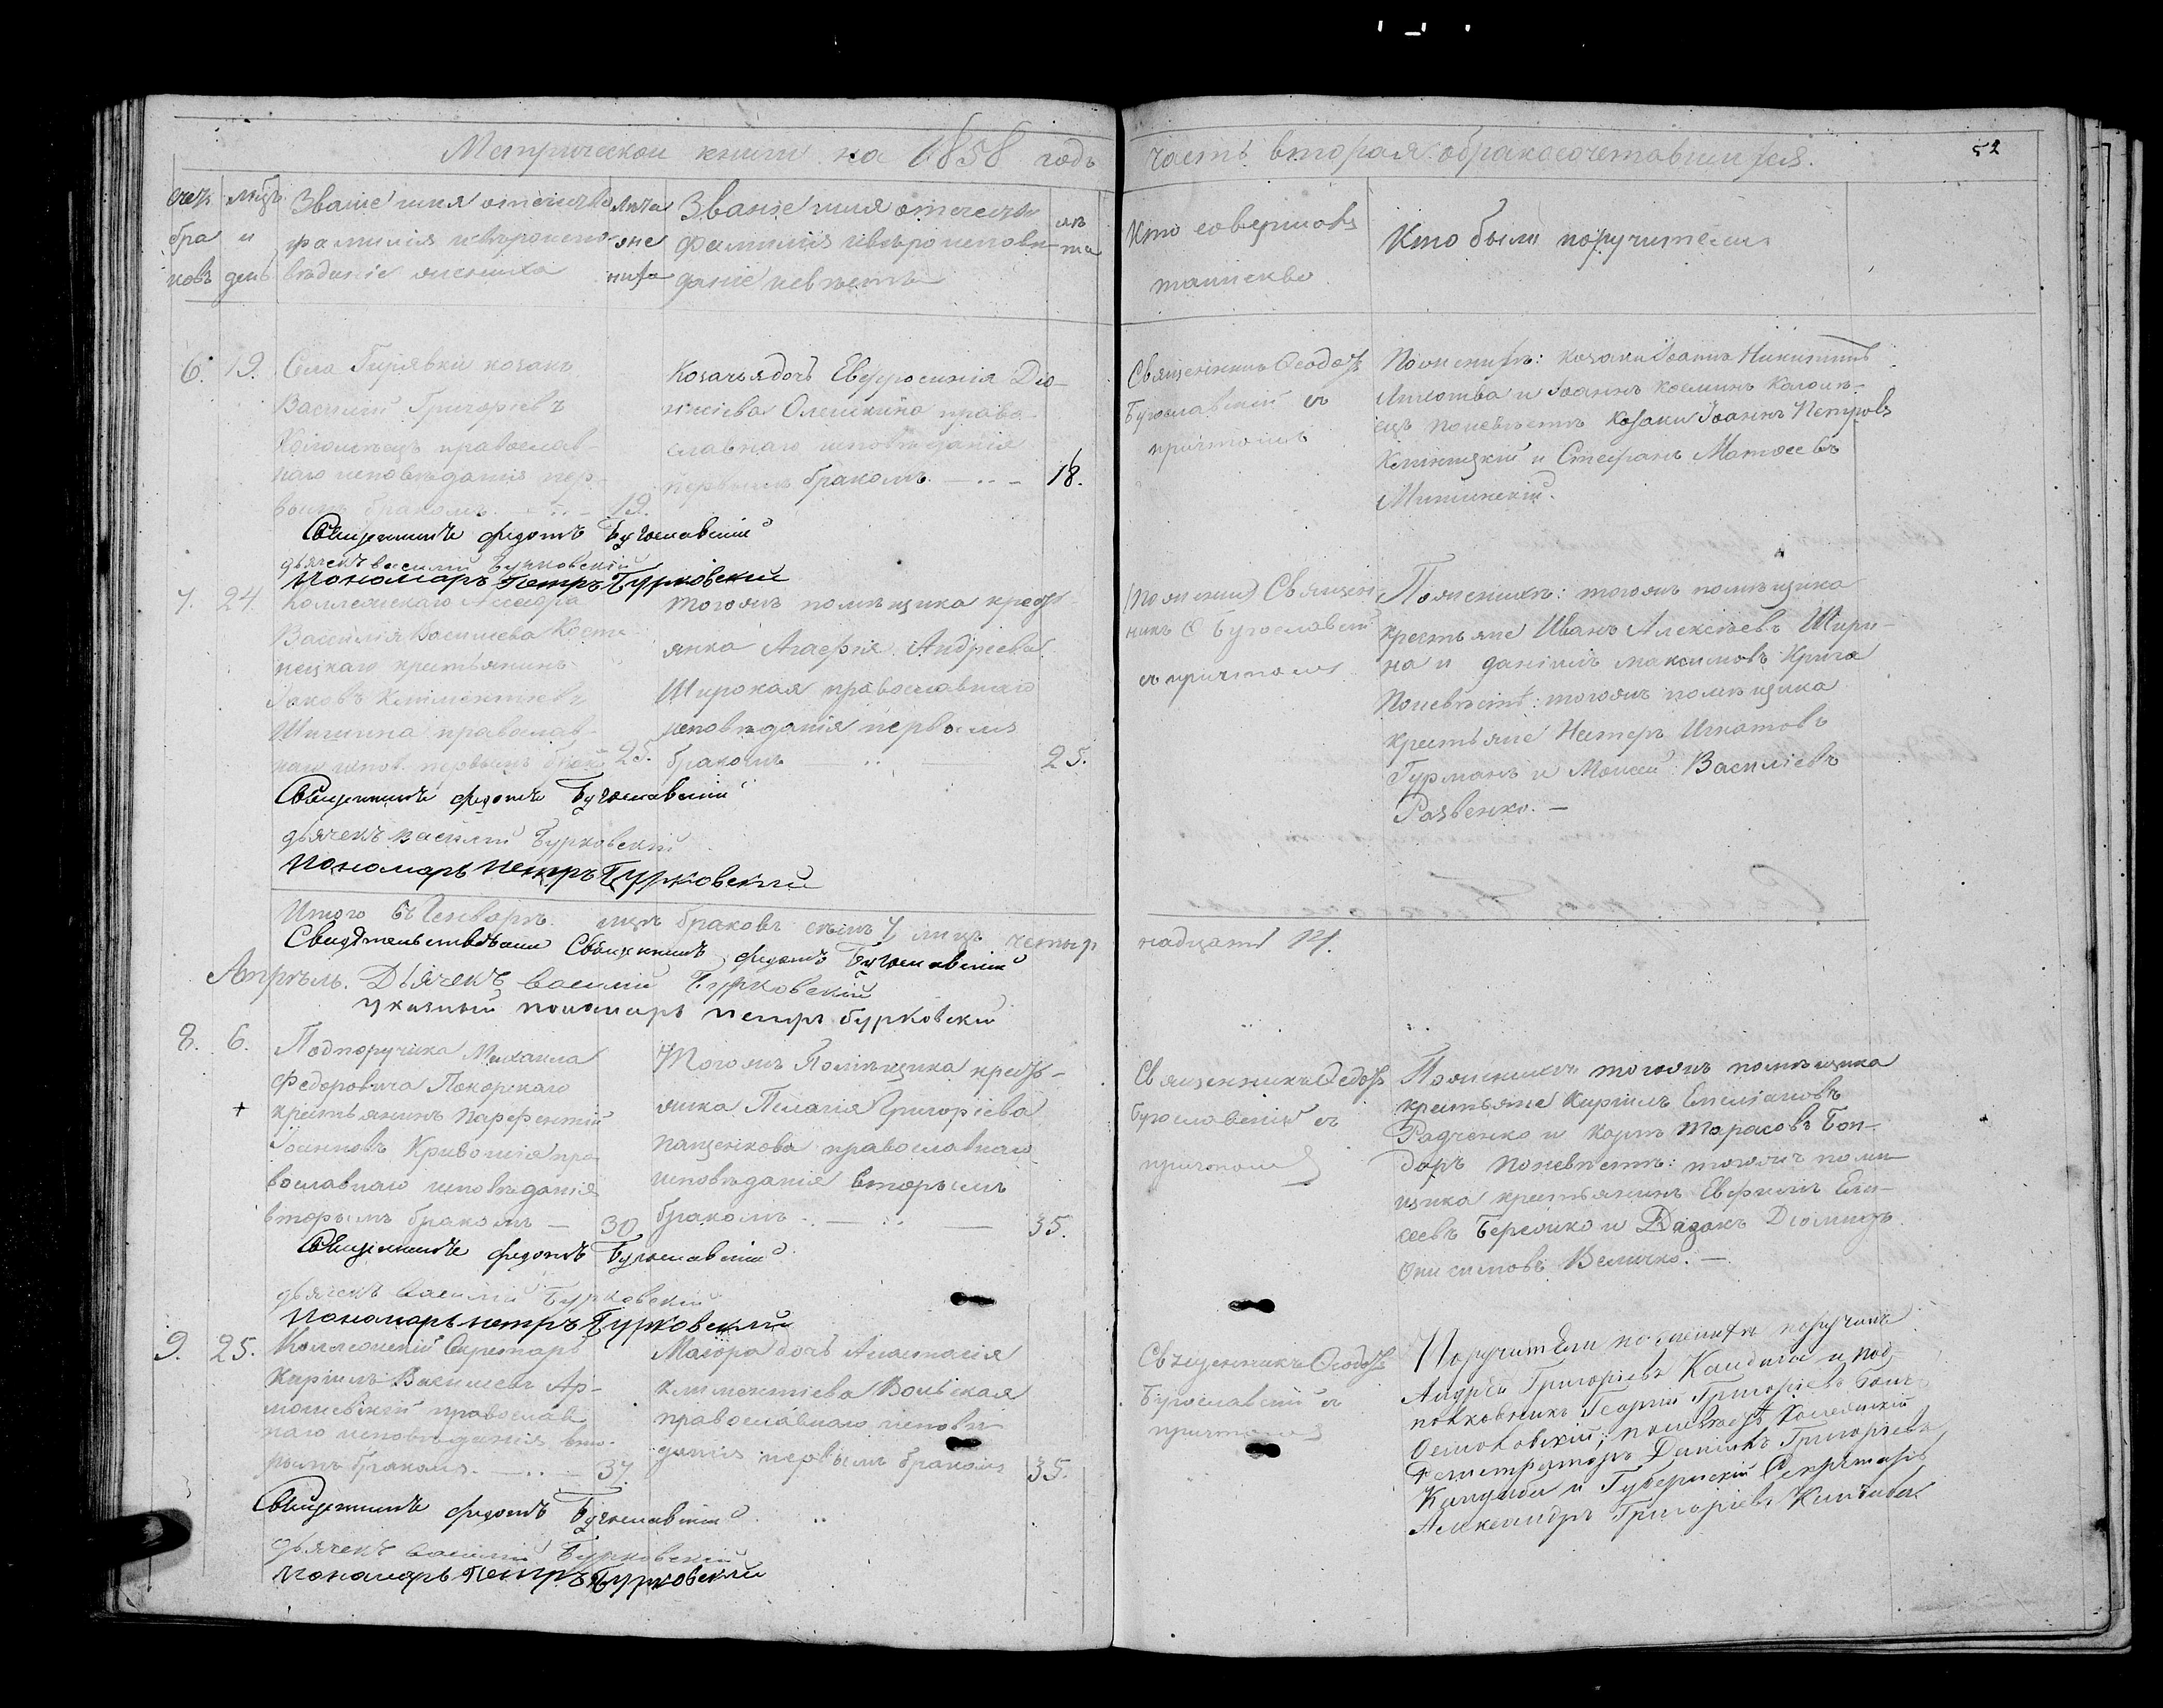 Метрической книги на 1858 годъ часть вторая о бракосочетавшихся.
52
счетъ бра ковъ
мцъ и день
Званіе имя отечество
фамилія и вѣроиспо-
вѣданіе жениха
лѣта
жениха
Званіе имя отечество
фамилія и вѣроисповѣ-
даніе невѣсты
лѣта
Кто совершалъ
таинство
Кто были поручители
6. 19.
Села Гирявки козакъ
Василій Григоріевъ
православ-
наго исповѣданія пер-
вымъ бракомъ. 19.
Козачья дочь Евфросинія Діо-
нисіева Олешкина право-
славнаго исповѣданія
первымъ бракомъ. 18.
Священникъ Ѳеодотъ
Бугославскій съ
причтомъ
По женихѣ: козаки Іоаннъ Никитинъ
и Іоаннъ Козминъ
по невѣстѣ козаки Іоаннъ Петровъ
и Стефанъ Матѳеевъ
Священникъ Федотъ Бугославскій
дьячекъ Василій Бурковскій
Пономарь Петръ Бурковскій
7. 24.
Коллежскаго Асесора
Василія Васильева
крестьянинъ
Іаковъ Климентіевъ
православ-
наго испов. первымъ брак. 25.
тогожъ помѣщика кресть-
янка Агафія Андріева
Широкая православнаго
исповѣданія первымъ
бракомъ 25.
Священ-
никъ Ѳ Бугославскій
съ причтомъ
По женихѣ: тогожъ помѣщика
крестьяне Иванъ Алексѣевъ Шири-
на и Даніилъ Максимовъ Крига
По невѣстѣ: тогожъ помѣщика
крестьяне Нестеръ Игнатовъ
Гурманъ и Моисей Василіевъ
Развенко. —
Священникъ Федотъ Бугославскій
дьячекъ Василій Бурковскій
Пономарь Петръ Бурковскій
Итого въ Генварѣ мцѣ браковъ семь 7, лицъ четыр
надцать 14.
Свидѣтельствовали Священникъ Федотъ Бугославскій
Апрѣль. Дьячекъ Василій Бурковскій
указный пономарь Петръ Бурковскій
8. 6.
Подпоручика Михаила
Федоровича Покорскаго
крестьянинъ Парфентій
Іоанновъ Кривошія пра-
вославнаго исповѣданія
вторымъ бракомъ — 30.
Тогожъ Помѣщика кресть-
янка Пелагія Григоріева
Пащенкова православнаго
исповѣданія вторымъ
бракомъ. — 35.
Священникъ Ѳедотъ
Бугославскій съ
причтомъ
По женихѣ тогожъ помѣщика
крестьяне Кирилъ Емеліановъ
Радченко и Карпъ Тарасовъ Бон-
даръ по невѣстѣ: тогожъ помѣ-
щика крестьянинъ Евфимъ Ели-
сеевъ и Діомидъ
Онисимовъ Величко. —
Священникъ Федотъ Бугославскій
дьячекъ Василій Бурковскій
Пономарь Петръ Бурковскій
9. 25.
Коллежскій Секретарь
Кирилъ Васильевъ Ар-
православ-
наго исповѣданія вто-
рымъ бракомъ. — 37.
Маіора дочь Анастасія
Климентіева Вольская
православнаго исповѣ-
данія первымъ бракомъ 35.
Священникъ Ѳеодотъ
Бугославскій съ
причтомъ
Поручители по женихѣ поручикъ
Андрей Григоріевъ Кандиба и под-
полковникъ Георгій Григоріевъ
по невѣстѣ Колежскій
Регистраторъ Даніилъ Григоріевъ
Кандиба и Губернскій Секретарь
Александръ Григоріевъ
Священникъ Федотъ Бугославскій
дьячекъ Василій Бурковскій
Пономарь Петръ Бурковскій